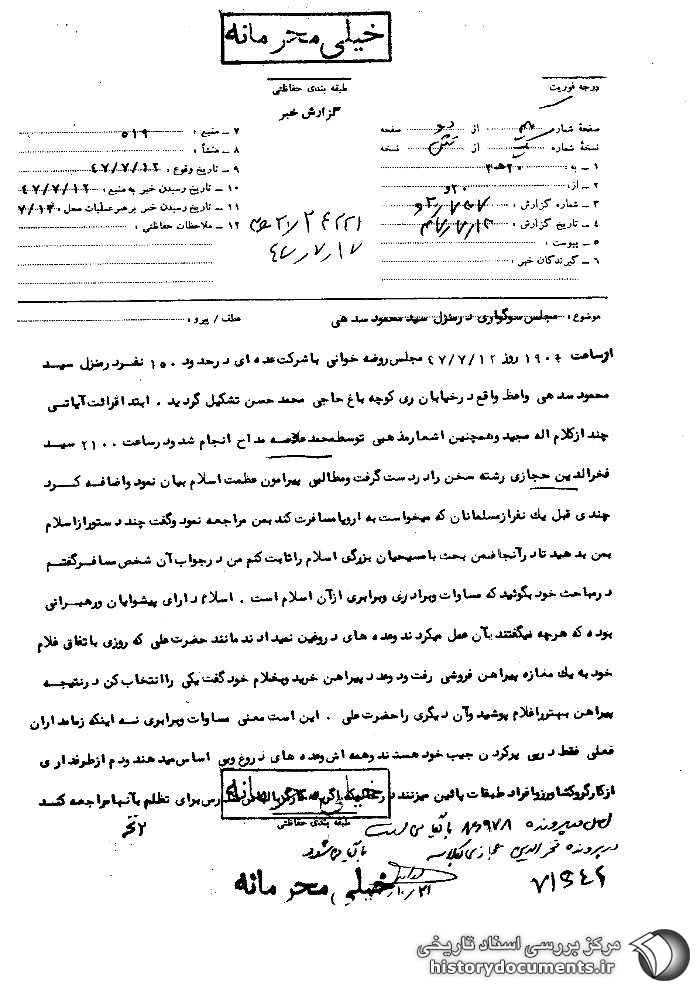 خیلی محرمانه
طبقه بندی حفاظتی
گزارش خبر
درجه فوریت
صفحۀ شماره از دو صفحه
نسخۀ شماره یک از شش نسخه
۱ ـ به : ۳۰ هـ ۲
۲ ـ از: ۲۰ و
۳ ـ شماره گزارش :
۴ ـ تاریخ گزارش :
۵ ـ پیوست :
۶ ـ گیرندگان خبر :
۷ ـ منبع : ۵۱۹
۸ ـ منشأ :
۹ ـ تاریخ وقوع : ۴۷/۷/۱۲
۱۰ ـ تاریخ رسیدن خبر به منبع : ۴۷/۷/۱۲
۱۱ ـ تاریخ رسیدن خبر برهبر عملیات محل :
۱۲ ـ ملاحظات حفاظتی :
۴۷/۷/۱۷
موضوع : مجلس سوگواری درمنزل سید محمود سدهی
عطف / پیرو :
ازساعت ۱۹۰۰ روز ۴۷/۷/۱۲ مجلس روضه خوانی باشرکت عده ای درحدود ۱۵۰ نفردرمنزل سید
محمود سدهی واعظ واقع درخیابان ری کوچه باغ حاجی محمد حسن تشکیل گردید . ابتدا قرائت آیاتی
چند ازکلام اله مجید وهمچنین اشعارمذهبی توسط محمد علامه مداح انجام شد ودرساعت ۲۱۰۰ سید
فخرالدین حجازی رشته سخن رادردست گرفت ومطالبی پیرامون عظمت اسلام بیان نمود واضافه کرد
چندی قبل یك نفرازمسلمانان که میخواست به اروپا مسافرت کند بمن مراجعه نمود وگفت چند دستورازاسلام
بمن بدهید تادرآنجا ضمن بحث بامسیحیان بزرگی اسلام راثابت کنم من درجواب آن شخص مسافرگفتم
درمباحث خود بگوئید که مساوات وبرادری وبرابری ازآن اسلام است . اسلام دارای پیشوایان ورهبرانی
بوده که هرچه میگفتند بآن عمل میکردند وعده های دروغین نمیدادند مانند حضرت علی که روزی باتفاق غلام
خود به یك مغازه پیراهن فروشی رفت ودوعدد پیراهن خرید وبغلام خود گفت یکی راانتخاب کن درنتیجه
پیراهن بهتررا غلام پوشید وآن دیگری راحضرت علی . این است معنی مساوات وبرابری نه اینکه زمامداران
فعلی فقط درپی پرکردن جیب خود هستند وهمه اش وعده های دروغ وبی اساس میدهند ودم ازطرفداری
ازکارگروکشاورزوافراد طبقات پائین میزنند درحالیکه اگریك کارگر برای تظلم بآنها مراجعه کند
خیلی محرمانه
طبقه بندی حفاظتی
اصل در پرونده
در پرونده فخرالدین حجازی بکلاسه
بایگانی شود
خیلی محرمانه
مرکز بررسی اسناد تاریخی
historydocuments.ir